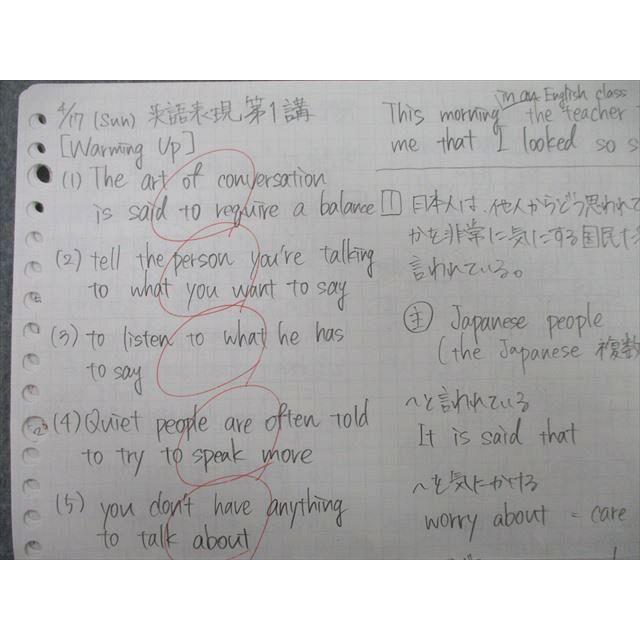 4/17 (Sun) 英語表現 第1講
[Warming Up]
(1) The art of conversation
is said to require a balance
(2) tell the person you're talking
to what you want to say
(3) to listen to what he has
to say
(4) Quiet people are often told
to try to speak more
(5) you don't have anything
to talk about
in an English class
This morning the teacher
me that I looked so s
1 日本人は、他人からどう思われて
かを非常に気にする国民だ
言われている。
主 Japanese people
(the Japanese 複数
~と言われている
It is said that
~を気にかける
worry about = care